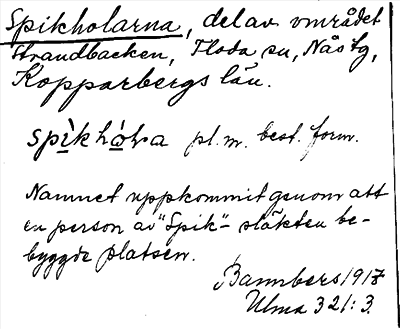 Spikholarna, del av området
Strandbacken, Floda sn, Nås tg,
Kopparbergs län.
spìkhòla pl. m. best. form.
Namnet uppkommit genom att
en person av "Spik"- släkten be-
byggde platsen.
Bannbers 1917
Ulma 321:3.